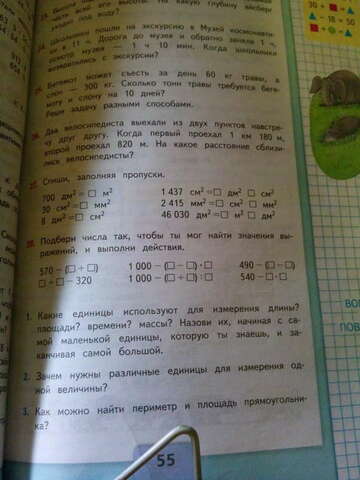 части всей его высоты. На какую глубину айсберг
уходит под воду?
24. Школьники пошли на экскурсию в Музей космонавти-
ки в 11 ч. Дорога до музея и обратно заняла 1 ч,
осмотр музея — 1 ч 10 мин. Когда школьники
возвратились с экскурсии?
25. Бегемот может съесть за день 60 кг травы, а
слон — 300 кг. Сколько тонн травы требуется беге-
моту и слону на 10 дней?
Реши задачу разными способами.
26. Два велосипедиста выехали из двух пунктов навстре-
чу друг другу. Когда первый проехал 1 км 180 м,
второй проехал 820 м. На какое расстояние сблизи-
лись велосипедисты?
27. Спиши, заполняя пропуски.
700 дм² = □ м² 1 437 см² = □ дм² □ см²
30 см² = □ мм² 2 415 мм² = □ см² □ мм²
8 дм² = □ см² 46 030 дм² = □ м² □ дм²
28. Подбери числа так, чтобы ты мог найти значения вы-
ражений, и выполни действия.
570 − (□ + □) 1 000 − (□ − □) · □ 490 − (□ : □)
□ + □ − 320 1 000 − (□ + □) : □ 540 − □ · □
1. Какие единицы используют для измерения длины?
площади? времени? массы? Назови их, начиная с са-
мой маленькой единицы, которую ты знаешь, и за-
канчивая самой большой.
2. Зачем нужны различные единицы для измерения од-
ной величины?
3. Как можно найти периметр и площадь прямоугольни-
ка?
55
30 +
− 18 =
ВО
ПОВ